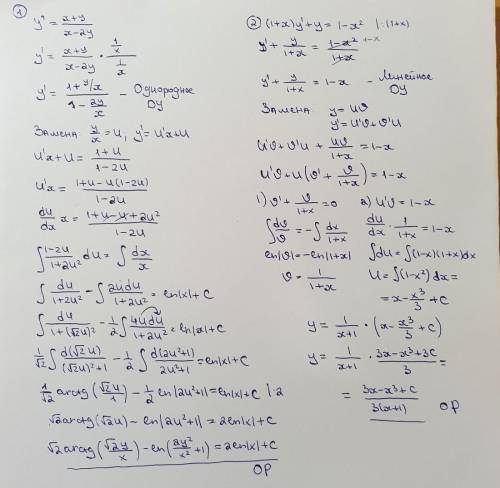 ① y' = (x+y)/(x-2y)
y' = (x+y)/(x-2y) · (1/x)/(1/x)
y' = (1+y/x)/(1-2y/x) – Однородное ОУ
Замена: y/x = u, y' = u'x+u
u'x+u = (1+u)/(1-2u)
u'x = (1+u-u(1-2u))/(1-2u)
du/dx x = (1+u-u+2u²)/(1-2u)
∫ (1-2u)/(1+2u²) du = ∫ dx/x
∫ du/(1+2u²) - ∫ 2udu/(1+2u²) = ln|x|+C
∫ du/(1+(√2u)²) - 1/2 ∫ 4udu/(1+2u²) = ln|x|+C
1/√2 ∫ d(√2u)/((√2u)²+1) - 1/2 ∫ d(2u²+1)/(2u²+1) = ln|x|+C
1/√2 arctg(√2u/1) - 1/2 ln|2u²+1| = ln|x|+C |·2
√2 arctg(√2u) - ln|2u²+1| = 2ln|x|+C
√2 arctg(√2y/x) - ln(2y²/x²+1) = 2ln|x|+C
ОР
② (1+x)y'+y = 1-x² |:(1+x)
y' + y/(1+x) = (1-x²)/(1+x) 1-x
y' + y/(1+x) = 1-x – Линейное ОУ
Замена: y = uv
y' = u'v+v'u
u'v+v'u + uv/(1+x) = 1-x
u'v+u(v' + v/(1+x)) = 1-x
1) v' + v/(1+x) = 0
∫ dv/v = -∫ dx/(1+x)
ln|v| = -ln|1+x|
v = 1/(1+x)
2) u'v = 1-x
du/dx · 1/(1+x) = 1-x
∫du = ∫(1-x)(1+x)dx
u = ∫(1-x²)dx =
= x - x³/3 + C
y = 1/(x+1) · (x - x³/3 + C)
y = 1/(x+1) · (3x-x³+3C)/3 =
= (3x-x³+C)/(3(x+1)) ОР